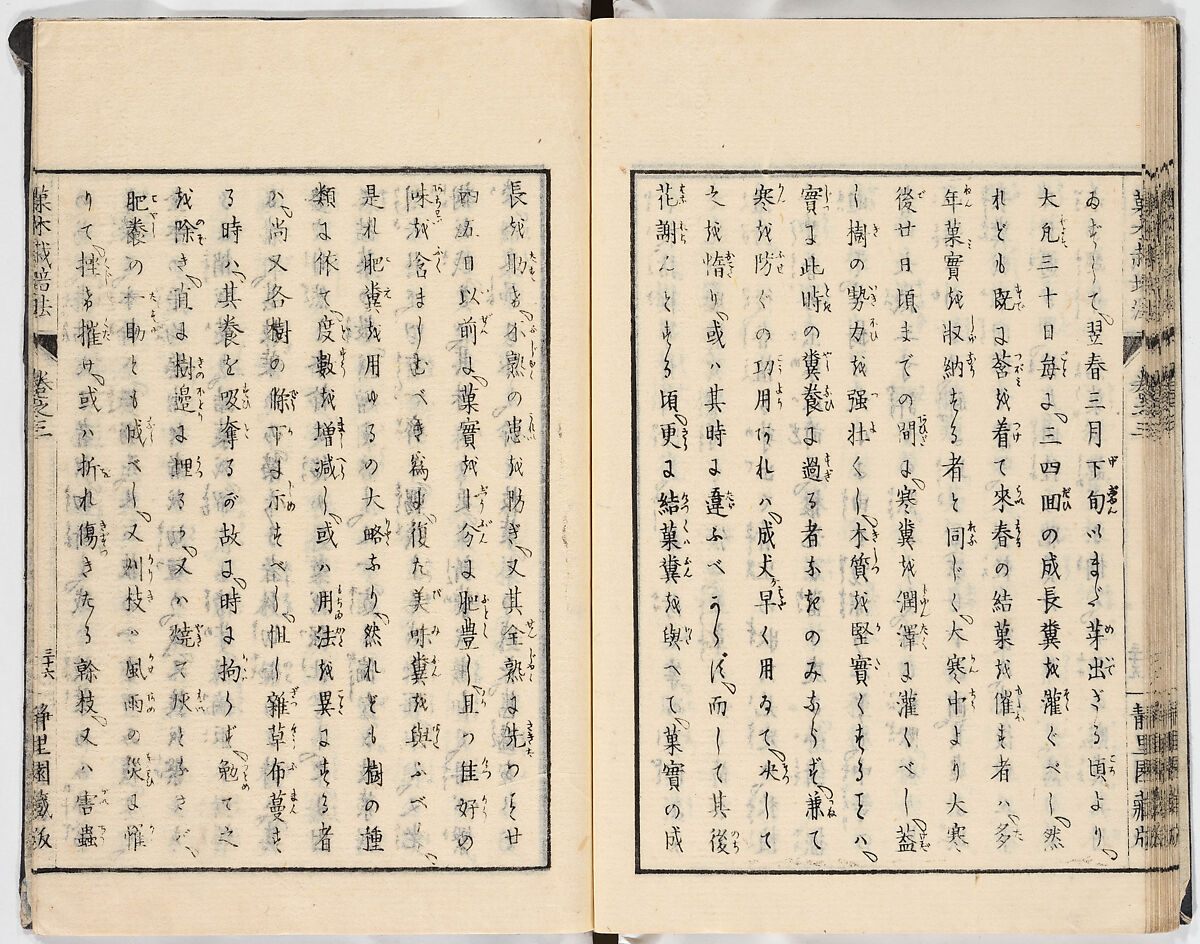 ゐむかして翌春三月下旬いまだ芽出ざる頃より
大凡三十日毎に三四回の成長糞を灌ぐべし然
れども既に莟を着て來春の結菓を催す者ハ多
年菓實を收納する者と同じく大寒中より大寒
後廿日頃までの間に寒糞を潤澤に灌くべし蓋
し樹の勢力を强壯くし木質を堅實くすることハ
實に此時の糞養に過る者なきのみならず兼て
寒を防ぐの功用あれハ成丈早く用ゐて決して
之を惰り或ハ其時に違ふべからず而して其後
花謝んとする頃更に結菓糞を與へて菓實の成
長を助け不熟の患を防ぎ又其全熟に先つこと廿
四五日以前に菓實を十分に肥豊し且つ佳好の
味を含ましむべき爲に復た美味糞を與ふべし
是れ肥糞を用ゆるの大略なり然れども樹の種
類に依て度數を増減し或ハ用法を異にする者
ハ尚又各樹の條下に示すべし但し雜草布蔓す
る時ハ其養を吸奪るが故に時に拘らず勉て之
を除き直に樹邊に埋るか又ハ燒て灰となさば
肥養の一助とも成べし又刈枝ハ風雨の災に罹
りて挫け摧け或ハ折れ傷きたる幹枝又ハ害蟲
菓木栽培法 卷之三 三十六 静里園藏版